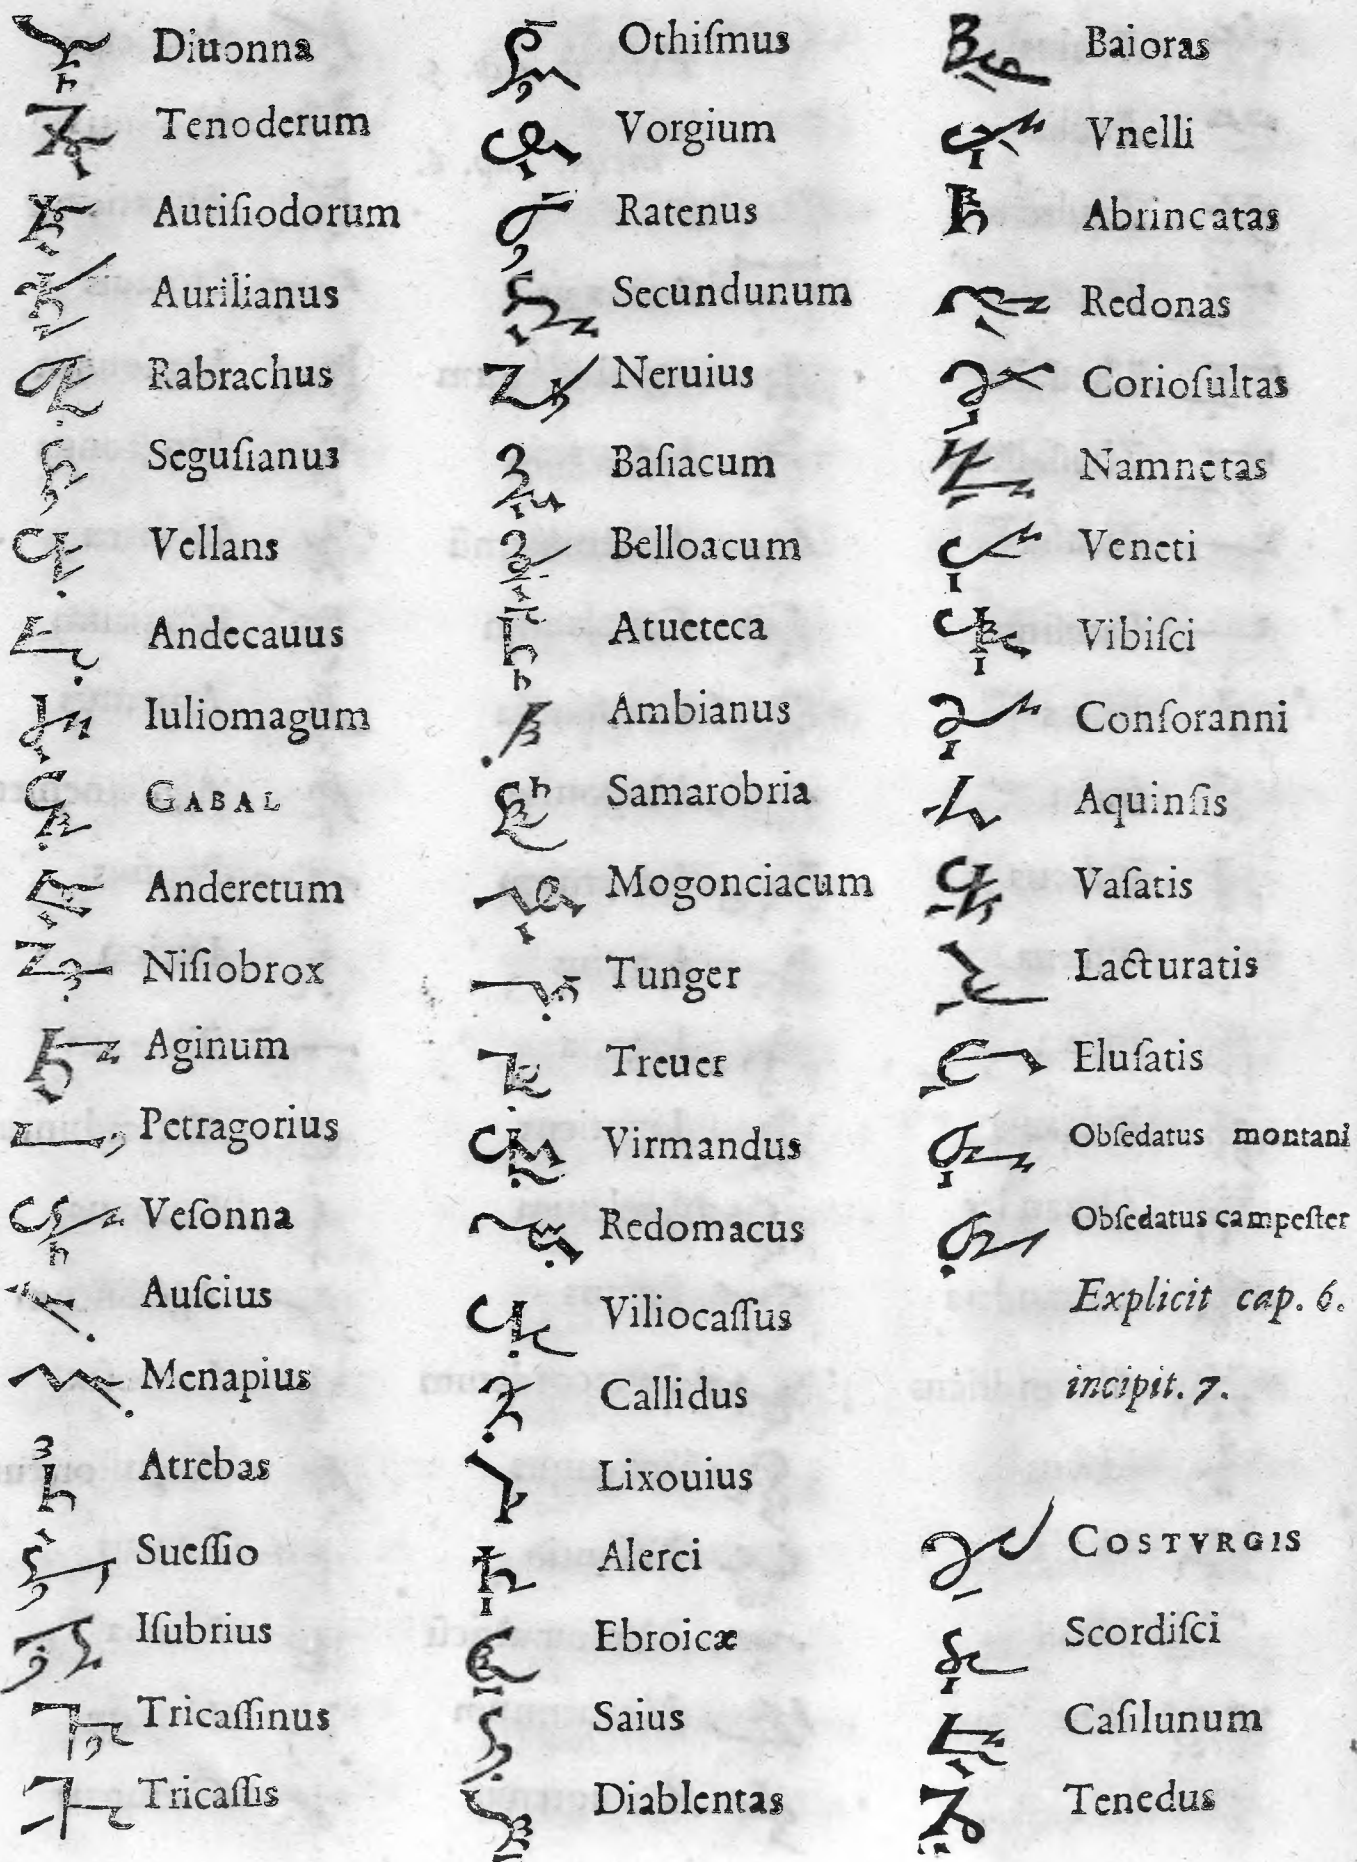 Diuonna
Tenoderum
Autiſiodorum
Aurilianus
Rabrachus
Seguſianus
Vellans
Andecauus
Iuliomagum
GABAL
Anderetum
Niſiobrox
Aginum
Petragorius
Veſonna
Auſcius
Menapius
Atrebas
Sueſſio
Iſubrius
Tricaſſinus
Tricaſſis
Othiſmus
Vorgium
Ratenus
Secundunum
Neruius
Baſiacum
Belloacum
Atueteca
Ambianus
Samarobria
Mogonciacum
Tunger
Treuer
Virmandus
Redomacus
Viliocaſſus
Callidus
Lixouius
Alerci
Ebroicæ
Saius
Diablentas
Baioras
Vnelli
Abrincatas
Redonas
Corioſultas
Namnetas
Veneti
Vibiſci
Conſoranni
Aquinſis
Vaſatis
Lacturatis
Eluſatis
Obſedatus montani
Obſedatus campeſter
Explicit cap. 6.
incipit. 7.
COSTVRGIS
Scordiſci
Caſilunum
Tenedus